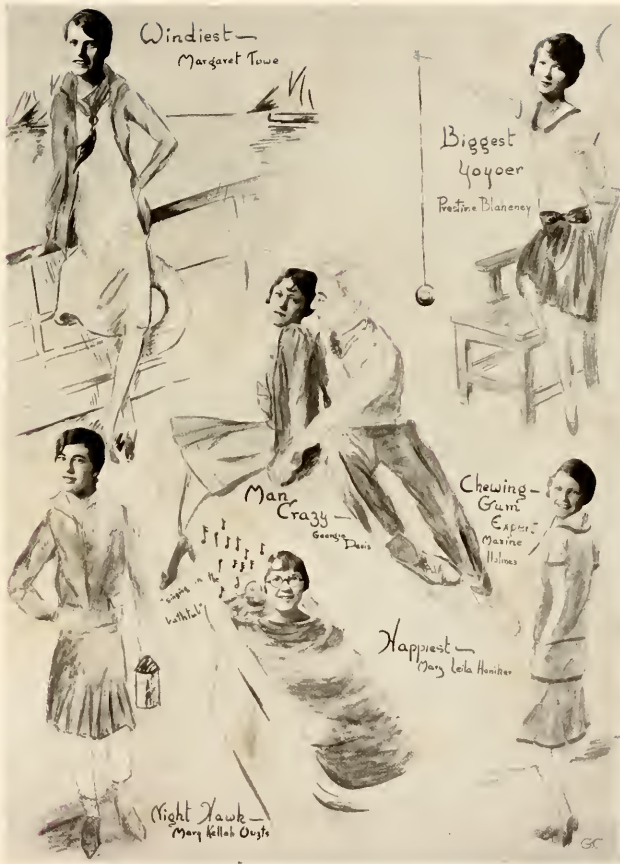 Windiest—
Margaret Towe
Biggest
Yoyoer
Prestine Blakeney
Man
Crazy—
Georgia
Davis
Chewing—
Gum
Expert
Maxine
Holmes
"singin in the
bathtub"
Happiest—
Mary Leila Honiker
Night Hawk—
Mary Kellah Ouzts
GC